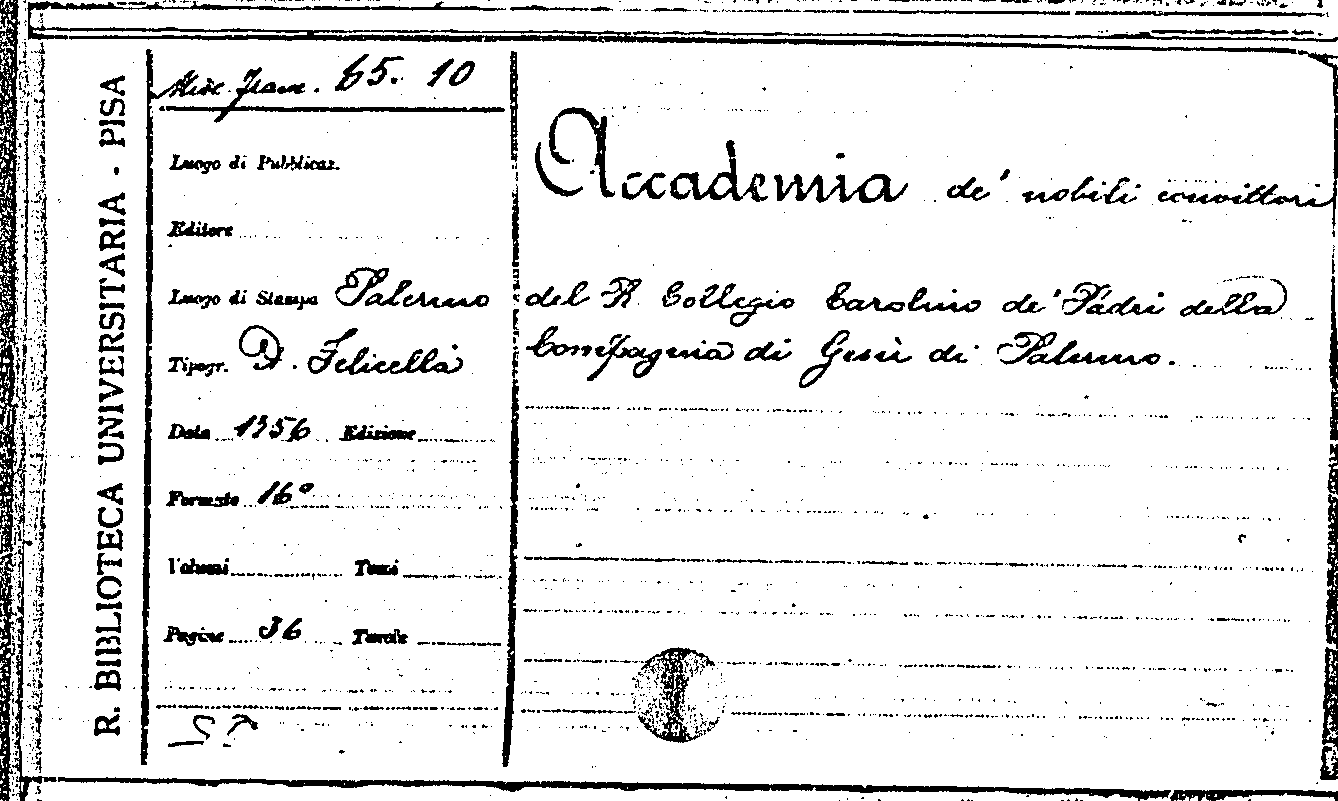 R. BIBLIOTECA UNIVERSITARIA - PISA
Misc. 65. 10
Luogo di Pubblicaz.
Editore
Luogo di Stampa Palermo
Tipogr. A. Felicella
Data 1756 Edizione
Formato 16°
Volumi Tomi
Pagine 36 Tavole
Accademia de' nobili convittori
del R. Collegio Carolino de' Padri della
Compagnia di Gesù di Palermo.